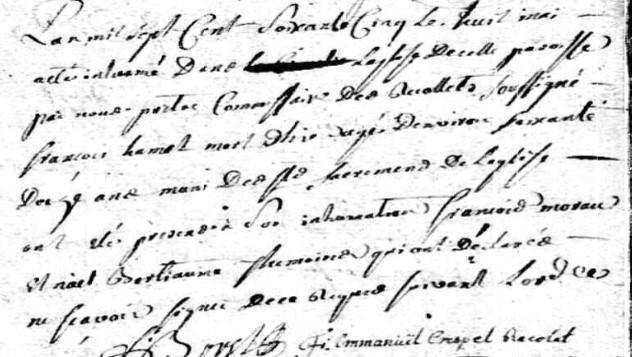 L'an mil sept Cent Soixante Cinq le huit mai
a eté inhumé Dans L'eglise De cette paroisse
par nous pretre Commissaire Des Recollets soussigné
françois hamel mort D'hier agé D'environ soixante
Douze ans muni Des sts sacrements De L'eglise
ont été presents a Son inhumation françois moreau
et noël Berthiaume qui ont Déclarés
ne sçavoir signer De ce requis suivant L'ord ce
f: Emmanuël Crepel Recolet